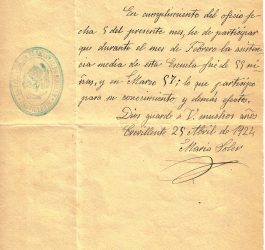 En cumplimiento del oficio fe-
cha 5 del presente mes, he de participar
que durante el mes de Febrero la asisten-
cia media de esta Escuela fué de 55 ni-
ñas, y en Marzo 57; lo que participo
para su conocimiento y demás efectos.
Dios guarde á V. muchos años
Crevillente 25 Abril de 1924
María Soler